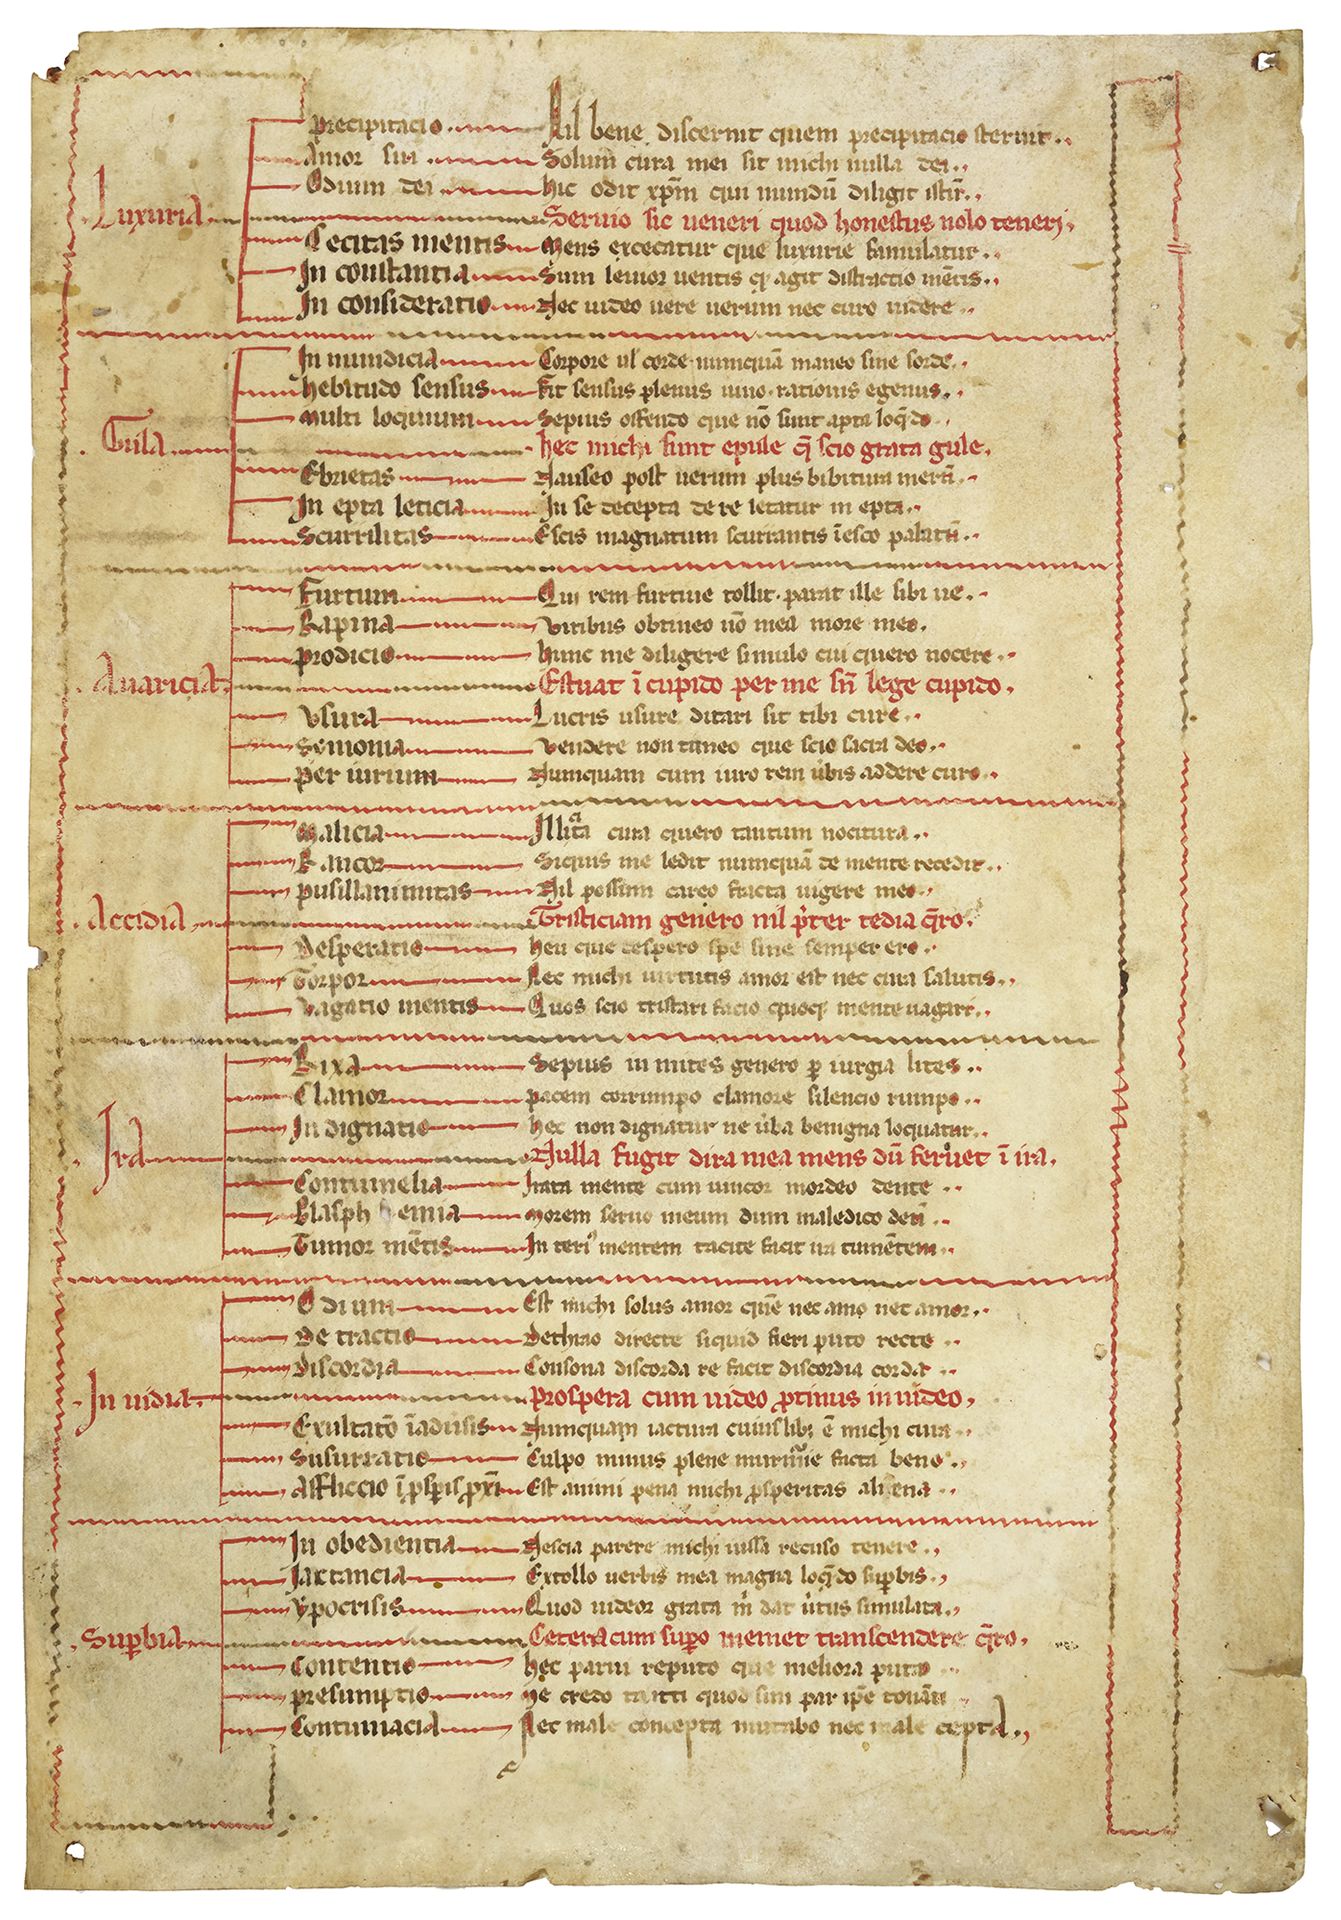 Precipitacio Nil bene discernit quem precipitacio sternit
Amor sui Solum cura mei sit michi nulla dei
Odium dei hic odit xpm̄ qui mundū diligit istū
Luxuria Servio sic veneri quod honestus nolo teneri
Cecitas mentis Mens excecatur que luxurie famulatur
In constantia Sum levior ventis q agit distractio mētis
In consideratio Nec video vere verum nec curo videre
In mundicia Corpore ul corde numquā maneo sine sorde
hebitudo sensus fit sensus plenus vino rationis egenus
Multi loquium Sepius offendo que nō sunt apta loq̄do
Gula hec michi sunt epule q̄ scio grata gule
Ebrietas Nauseo post verum plus bibitum merū
In epta leticia In se decepta de re letatur in epta
Scurrilitas Escis magnatum scurrantis īesco palatū
Furtum Qui rem furtive tollit parat ille sibi ve
Rapina Viribus obtineo nō mea more meo
Prodicio hunc me diligere simulo cui quero nocere
Avaricia Estuat ī cupido per me sn̄ lege cupido
Usura Lucris usure ditari sit tibi cure
Semonia Vendere non timeo que scio sacra deo
Per iurium Numquam cum iuro rem v̄bis addere curo
Malicia cura quero tantum nocitura
Rancor Siquis me ledit numquā de mente recedit
Pusillanimitas Nil possum careo fracta vigere meo
Accidia Tristiciam genero nil p̄ter tedia q̄ro
Desperatio heu que despero spe sine semper ero
Torpor Nec michi virtutis amor est nec cura salutis
Vagatio mentis Quos scio tristari facio quoq mente vagari
Rixa Sepius in mites genero p iurgia lites
Clamor Pacem corrumpo clamore silencio rumpo
In dignatio hec non dignatur ne v̄ba benigna loquatur
Ira Nulla fugit dira mea mens dū fervet ī ira
Contumelia Irata mente cum vincor mordeo dente
Blasphemia Morem servo meum dum maledico deū
Tumor mētis In teri mentem tacite facit ira tumētem
Odium Est michi solus amor quē nec amo nec amor
De tractio Dethrao directe siquid fieri puto recte
Discordia Consona discorda re facit discordia corda
In vidia Prospera cum video ptinus in video
Exultatō ī advsis Numquam iactura cuiuslib; ē michi cura
Susurratio Culpo minus plene facta bene
Affliccio ī psp̄is pxī Est animi pena michi psperitas aliena
In obedientia Nescia parere michi iussa recuso tenere
Jactancia Extollo verbis mea magna loq̄do supbis
Ypocrisis Quod videor grata m̄ dat v̄tus simulata
Supbia Cetera cum supo memet transcendere q̄ro
Contentio hec parvi reputo que meliora puto
Presumptio Me credo tanti quod sim par ip̄e tonāti
Contumacia Nec male concepta mutabo nec male cepta